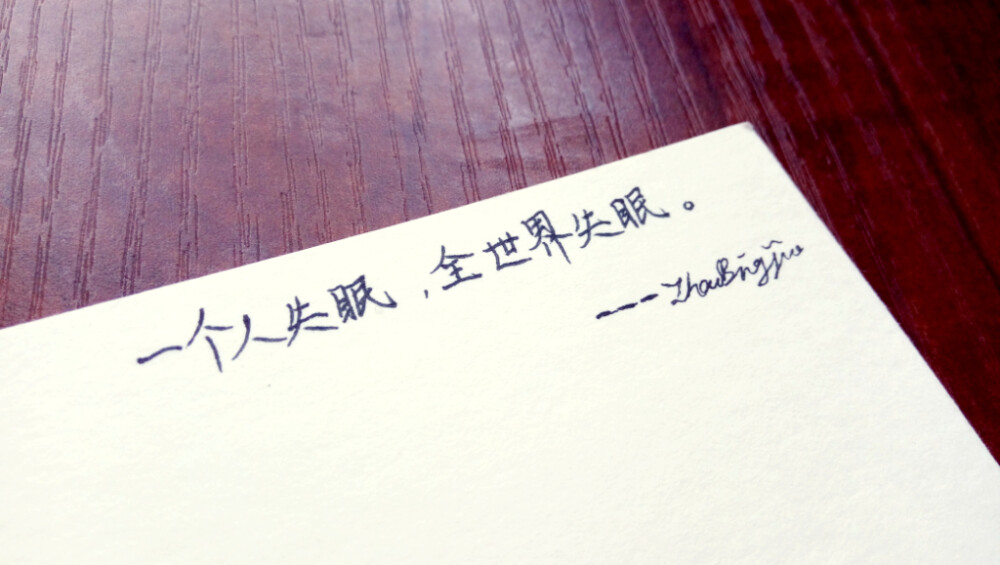 一个人失眠，全世界失眠。
---ZhouBingjiu